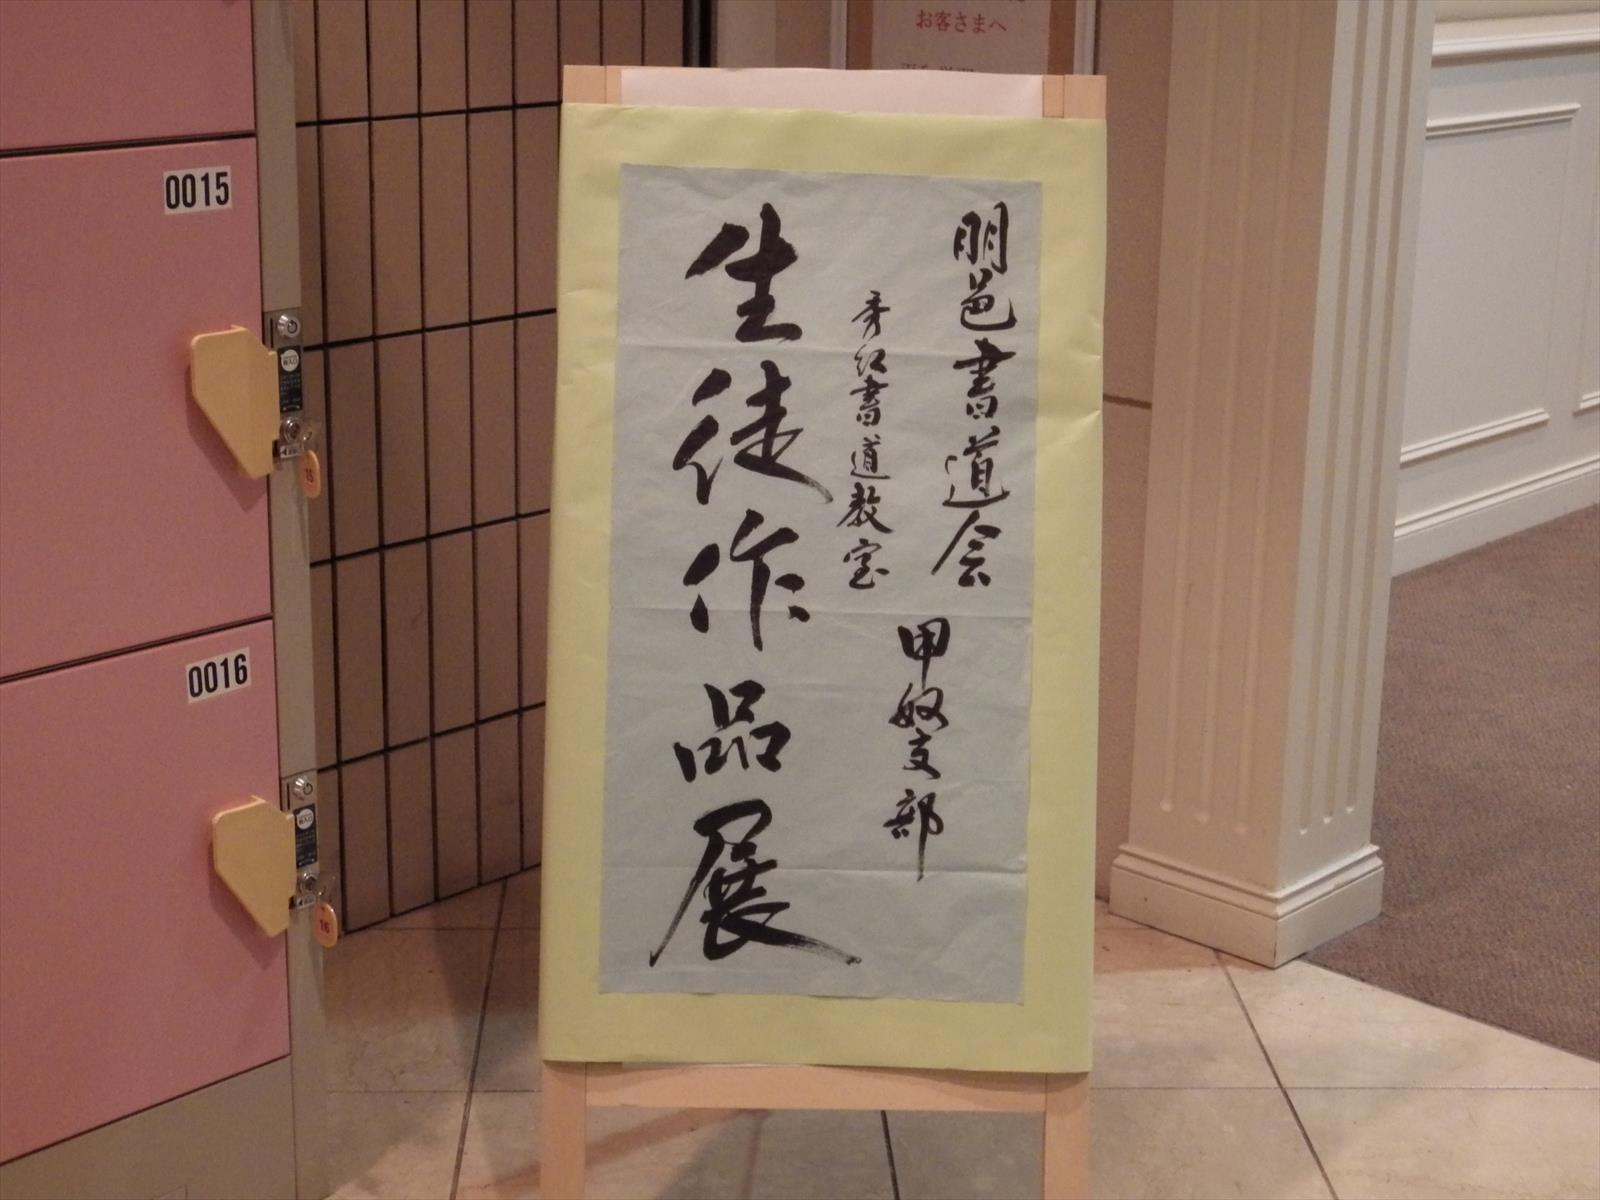 お客さまへ
0015
0016
朋邑書道会
甲奴支部
秀紅書道教室
生徒作品展
15
16